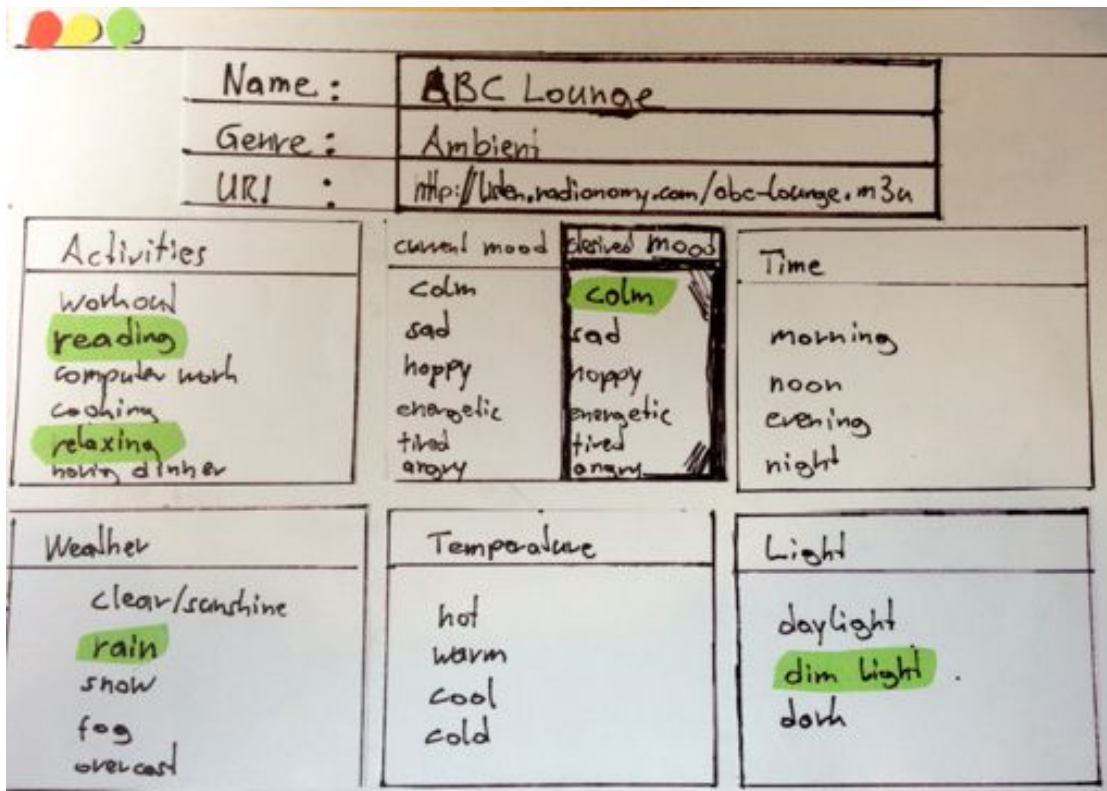 Name : ABC Lounge
Genre : Ambient
URI : http://listen.radionomy.com/abc-lounge.m3u
Activities
workout
reading
computer work
cooking
relaxing
having dinner
current mood
calm
sad
happy
energetic
tired
angry
desired mood
calm
sad
happy
energetic
tired
angry
Time
morning
noon
evening
night
Weather
clear/sunshine
rain
snow
fog
overcast
Temperature
hot
warm
cool
cold
Light
daylight
dim light
dark